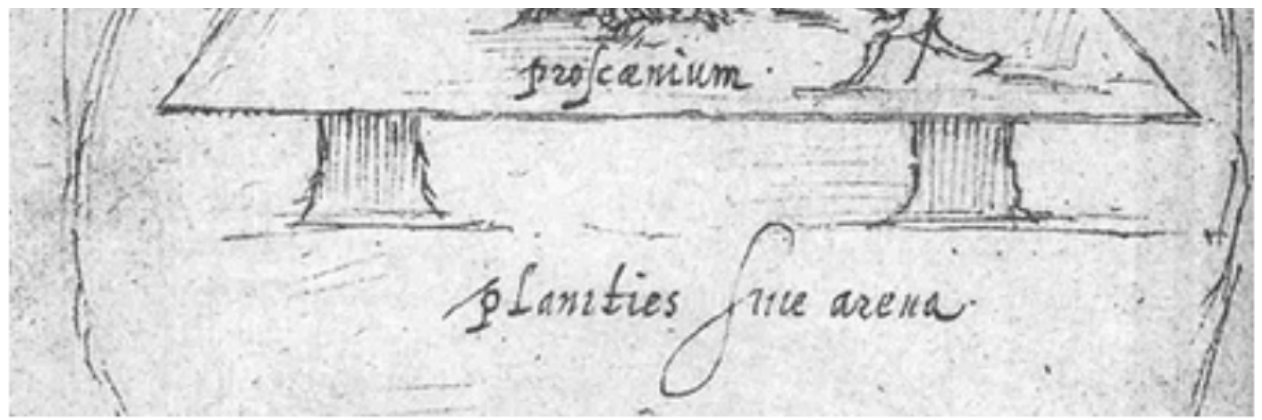 proſcænium.
planities ſiue arena.